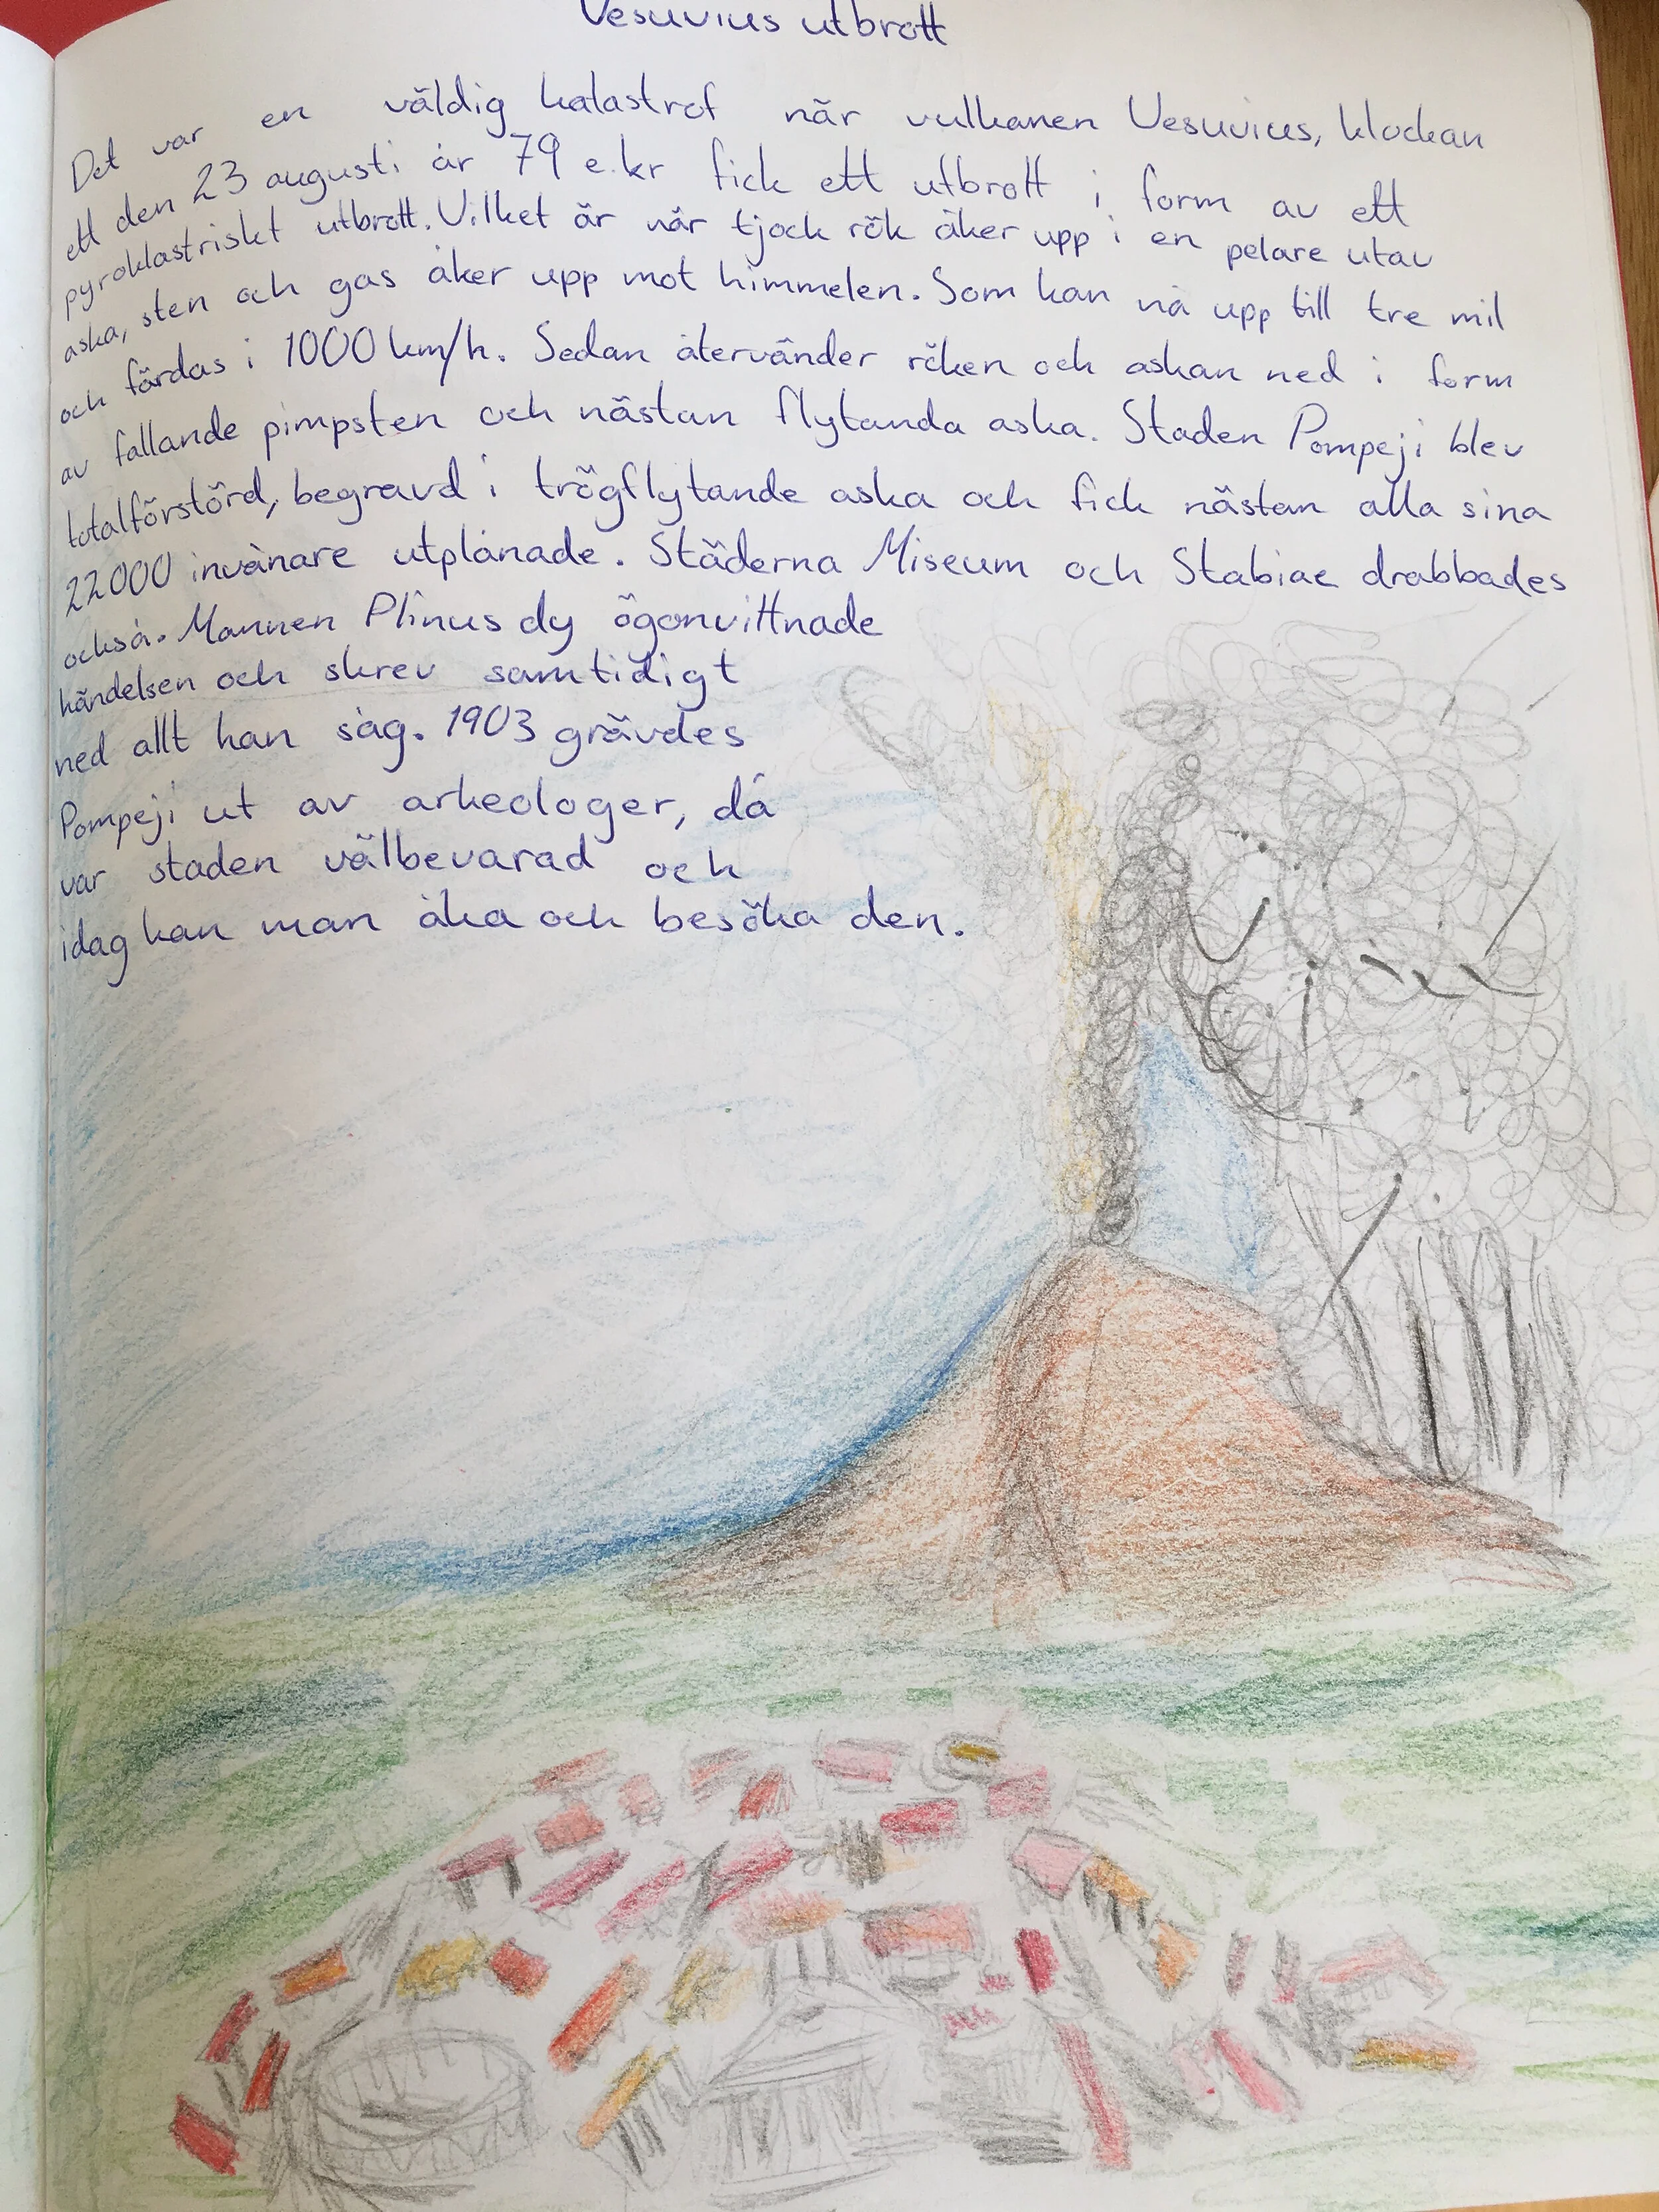 Vesuvius utbrott
Det var en väldig katastrof när vulkanen Vesuvius, klockan
ett den 23 augusti år 79 e.kr fick ett utbrott i form av ett
pyroklastriskt utbrott. Vilket är när tjock rök åker upp i en pelare utav
aska, sten och gas åker upp mot himmelen. Som kan nå upp till tre mil
och färdas i 1000 km/h. Sedan återvänder röken och askan ned i form
av fallande pimpsten och nästan flytanda aska. Staden Pompeji blev
totalförstörd, begravd i trögflytande aska och fick nästan alla sina
22000 invånare utplånade. Städerna Miseum och Stabiae drabbades
också. Mannen Plinus dy ögonvittnade
händelsen och skrev samtidigt
ned allt han såg. 1903 grävdes
Pompeji ut av arkeologer, då
var staden välbevarad och
idag kan man åka och besöka den.